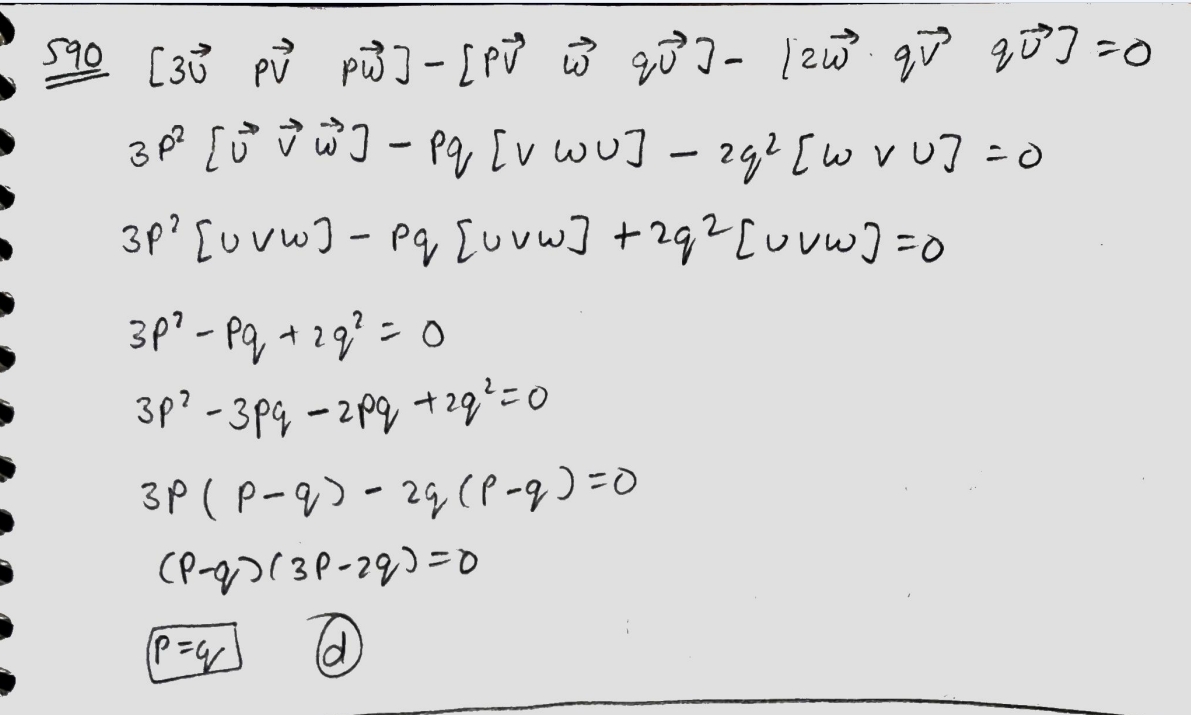 590 [3u⃗ pv⃗ pw⃗] - [pv⃗ w⃗ qu⃗] - [2w⃗ qv⃗ qu⃗] = 0
3p² [u⃗ v⃗ w⃗] - pq [v w u] - 2q² [w v u] = 0
3p² [u v w] - pq [u v w] + 2q² [u v w] = 0
3p² - pq + 2q² = 0
3p² - 3pq - 2pq + 2q² = 0
3p (p - q) - 2q (p - q) = 0
(p - q) (3p - 2q) = 0
p = q d